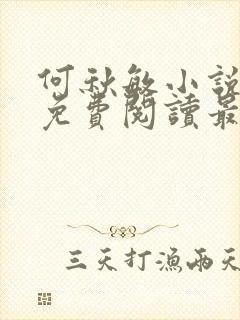 何秋敏小說
免費閱讀最
三天打漁兩天